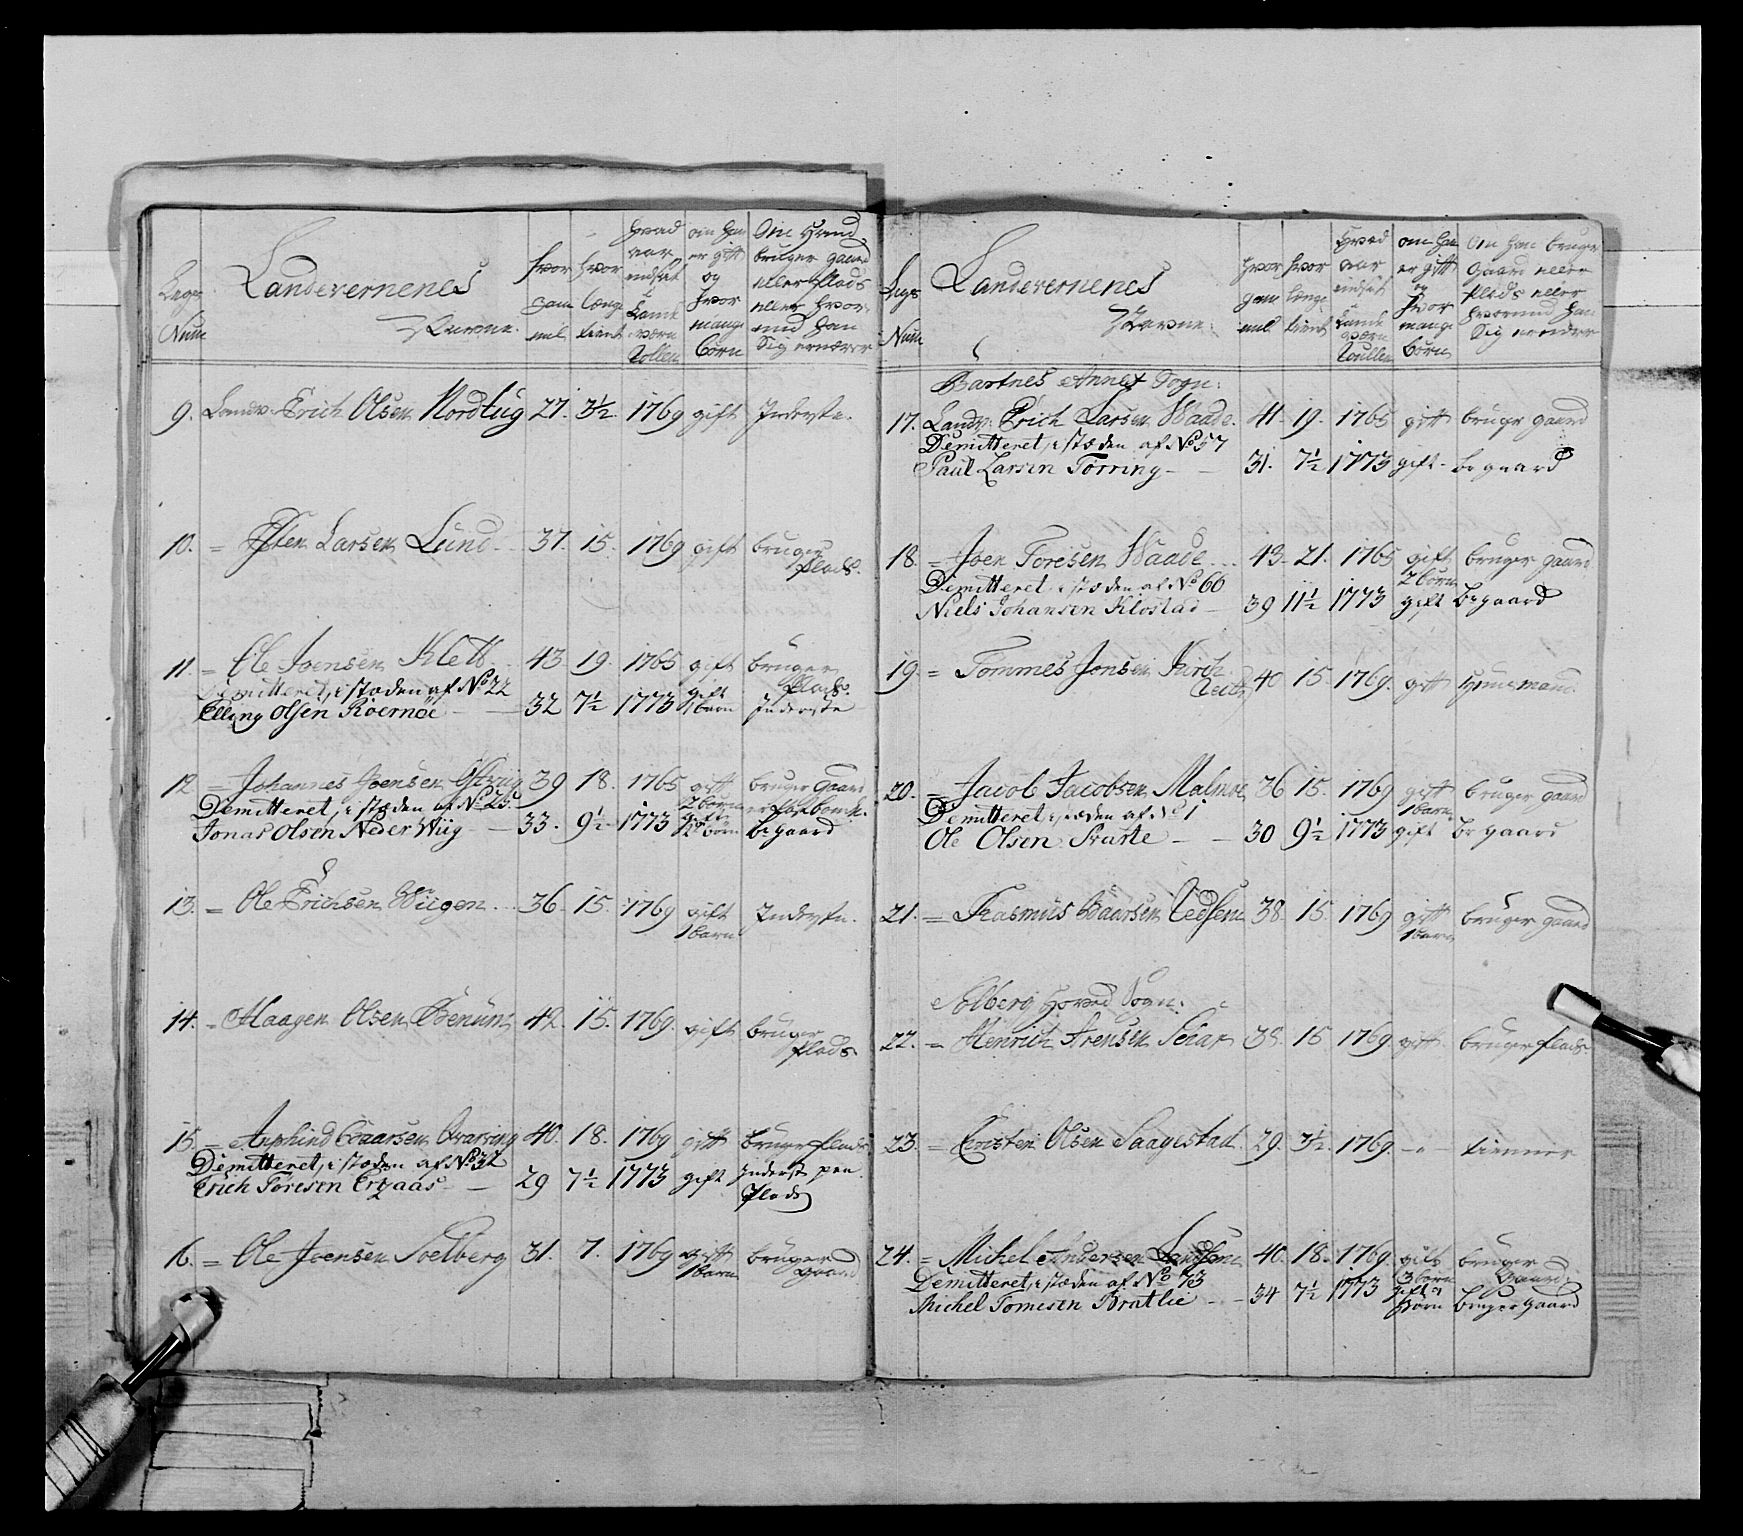 Legs
Num
Landevernenes
Navne.
hvor
gam
mel
hvor
længe
tient
hvad
aar
indsat
i
Lande
værn
Rollen
om han
er gift
og
hvor
mange
börn
Om Hand
bruger gaard
eller Plads
eller hvor-
med han
Sig ernærer
9. Landv. Erich Olsen Nordlug 27. 3½. 1769 gift Inderste.
10. = Østen Larsen Lund 37. 15. 1769 gift bruger
Plads.
11. = Ole Joensen Klett 43 19. 1765 gift bruger
Plads.
Demitteret, i stæden af No 22
Elling Olsen Roernöe 32 7½ 1773 gift
1 barn Inderste
12 = Johannes Joensen 39 18. 1765 gift bruger gaard
2 börn
Demitteret, i stæden af No 25.
Jonas Olsen Neder Wiig 33. 9½ 1773 gift
börn br gaard
13. = Ole Erichsen Wiigen 36 15. 1769 gift
1 barn Inderste.
14. = Haagen Olsen Benum 42. 15. 1769. gift bruger
Plads.
15 = Arnphind Baarsen Qvarving 40. 18. 1769 gift bruger Plads
Demitteret, i stæden af No 32
Erich Toresen 29 7½ 1773 gift Inderst paa
Plads
16. = Ole Joensen Soelberg 31. 7. 1769 gift
1 barn bruger
gaard
Legs
Num
Landevernenes
Navne.
hvor
gam
mel
hvor
længe
tient
Hvad
aar
indsat
i
Lande
værn
Roullen
om han
er gift
og
hvor
mange
börn
Om han bruger
Gaard eller
Plads eller
hvormed han
Sig ernærer
Bartnes Annex Sogn:
17. Landv. Erich Larsen Waade. 41. 19. 1765 gift bruger gaard
Demitteret, i stæden af No 57
Paul Larsen Tørring 31. 7½ 1773 gift br gaard
18. = Joen Toresen Waade 43. 21. 1765 gift
2 börn bruger gaard
Demitteret, i stæden af No 60
Niels Johansen Klostad 39 11½ 1773 gift br gaard
19. = Tommes Jonsen Kirch 40 15. 1769. gift Huusmand.
20. = Jacob Jacobsen Malmoe 36 15. 1769 gift
1 barn bruger gaard
Demitteret, i stæden af No 1
Ole Olsen Svarte 30 9½ 1773 gift br gaard
21. = Rasmus Baarsen 38. 15. 1769 gift
1 barn bruger gaard
Solberg Hoved Sogn:
22. = Henrich Arensen 38. 15. 1769. gift bruger Plads
23. = Torsten Olsen Saagistad 29. 3½. 1769. - " - tienner
24. = Michel Andersen 40. 18. 1769. gift
3 börn bruger
Gaard.
Demitteret, i stæden af No 73
Michel Tomesen Bratlie 34 7½ 1773 gift
börn bruger gaard